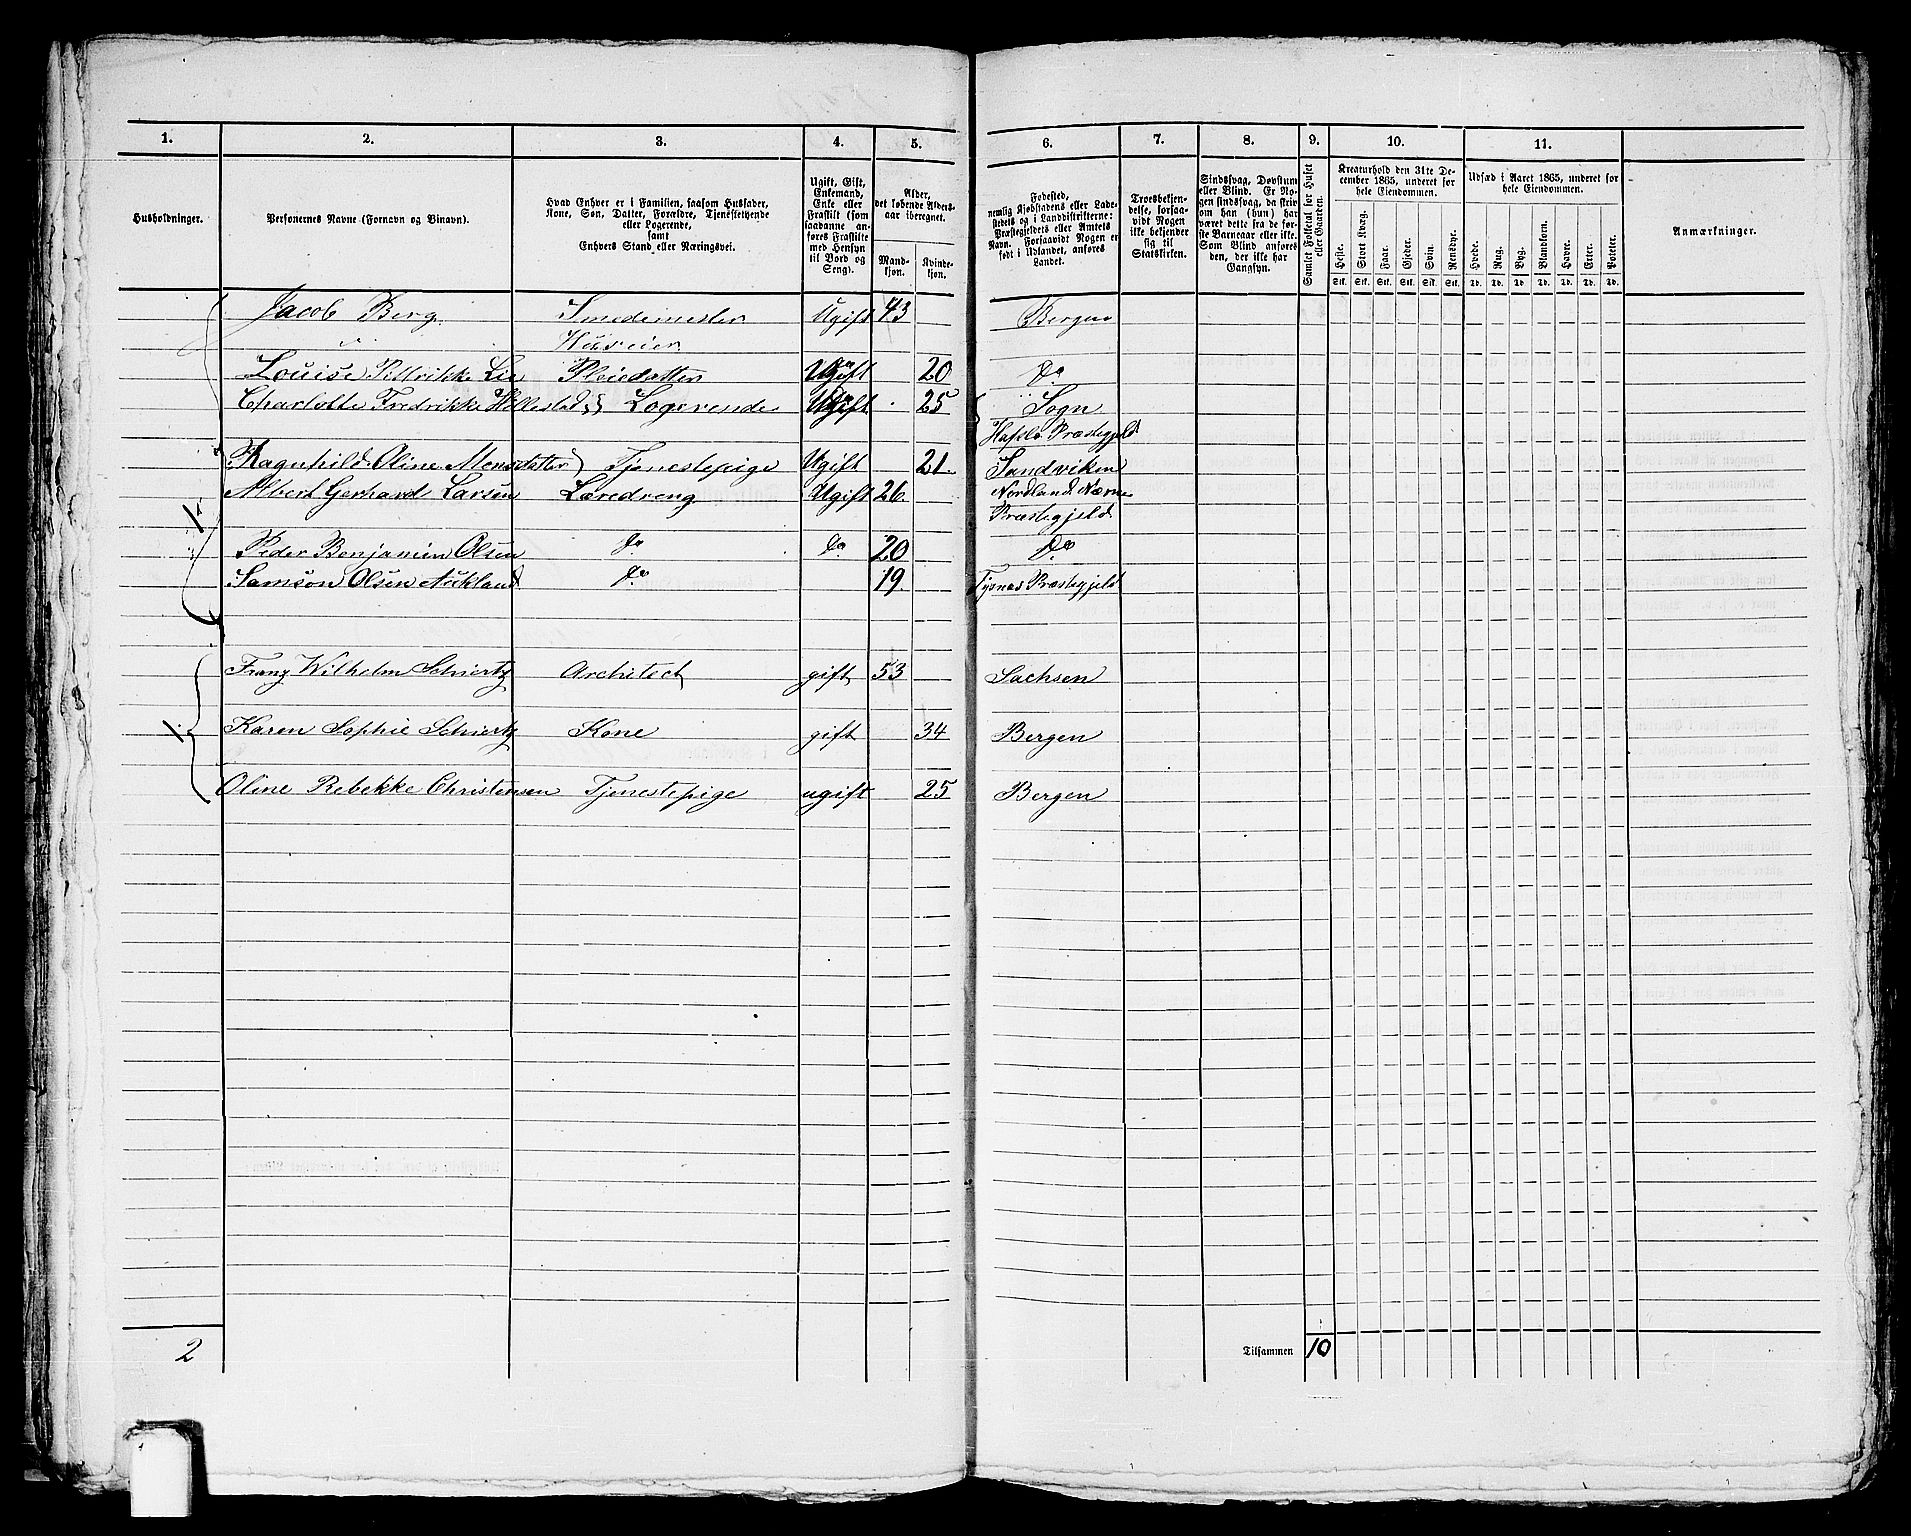 1. 2. 3. 4. 5. 6. 7. 8. 9. 10. 11.
Husholdninger.
Personernes Navne (Fornavn og Binavn).
Hvad Enhver er i Familien, saasom Husfader,
Kone, Søn, Datter, Forældre, Tjenestetyende
eller Logerende,
samt
Enhvers Stand eller Næringsvei.
Ugift, Gift,
Enkemand,
Enke eller
Fraskilt (som
saadanne an-
føres Fraskilte
med Hensyn
til Bord og
Seng).
Alder,
det løbende Alders-
aar iberegnet.
Mand-
kjøn.
Kvinde-
kjøn.
Fødested,
nemlig Kjøbstadens eller Lade-
stedets og i Landdistrikterne:
Præstegjeldets eller Amtets
Navn. Forsaavidt Nogen er
født i Udlandet, anføres
Landet.
Troesbekjen-
delse, forsaa-
vidt Nogen
ikke bekjender
sig til
Statskirken.
Sindssvag, Døvstum
eller Blind. Er No-
gen sindssvag, da skriv
om han (hun) har
været dette fra de før-
ste Barneaar eller ikke.
Som Blind anføres
den, der ikke har
Gangsyn.
Samlet Folketal for Huset
eller Gaarden.
Kreaturhold den 31te De-
cember 1865, underet for
hele Eiendommen.
Heste. Stort Kvæg. Faar. Gjeder. Svin. Rensdyr.
Stk. Stk. Stk. Stk. Stk. Stk.
Udsæd i Aaret 1865, underet for
hele Eiendommen.
Hvede. Rug. Byg. Blandkorn. Havre. Erter. Poteter.
Td. Td. Td. Td. Td. Td. Td.
Anmærkninger.
Jacob Berg Smedemester Ugift 43 Bergen
Huseier
Louise Lie Pleiedatter Ugift 20 Do
Charlotte Fredrikke Hillestad Logerende Ugift 25 Sogn
Hafslo Præstegjeld
Ragnhild Oline Monsdatter Tjenestepige Ugift 21. Sandviken
Albert Gerhard Larsen Læredreng Ugift 26 Nordland Nærne
1 Præstegjeld
Peder Benjamin Olsen Do Do 20 Do
Samson Olsen Aukland Do 19. Tysnes Præstegjeld
Franz Wilhelm Schiertz Architect gift 53 Sachsen
1. Karen Sophie Schiertz Kone gift 34 Bergen
Oline Rebekke Christensen Tjenestepige ugift 25 Bergen
2 Tilsammen 10